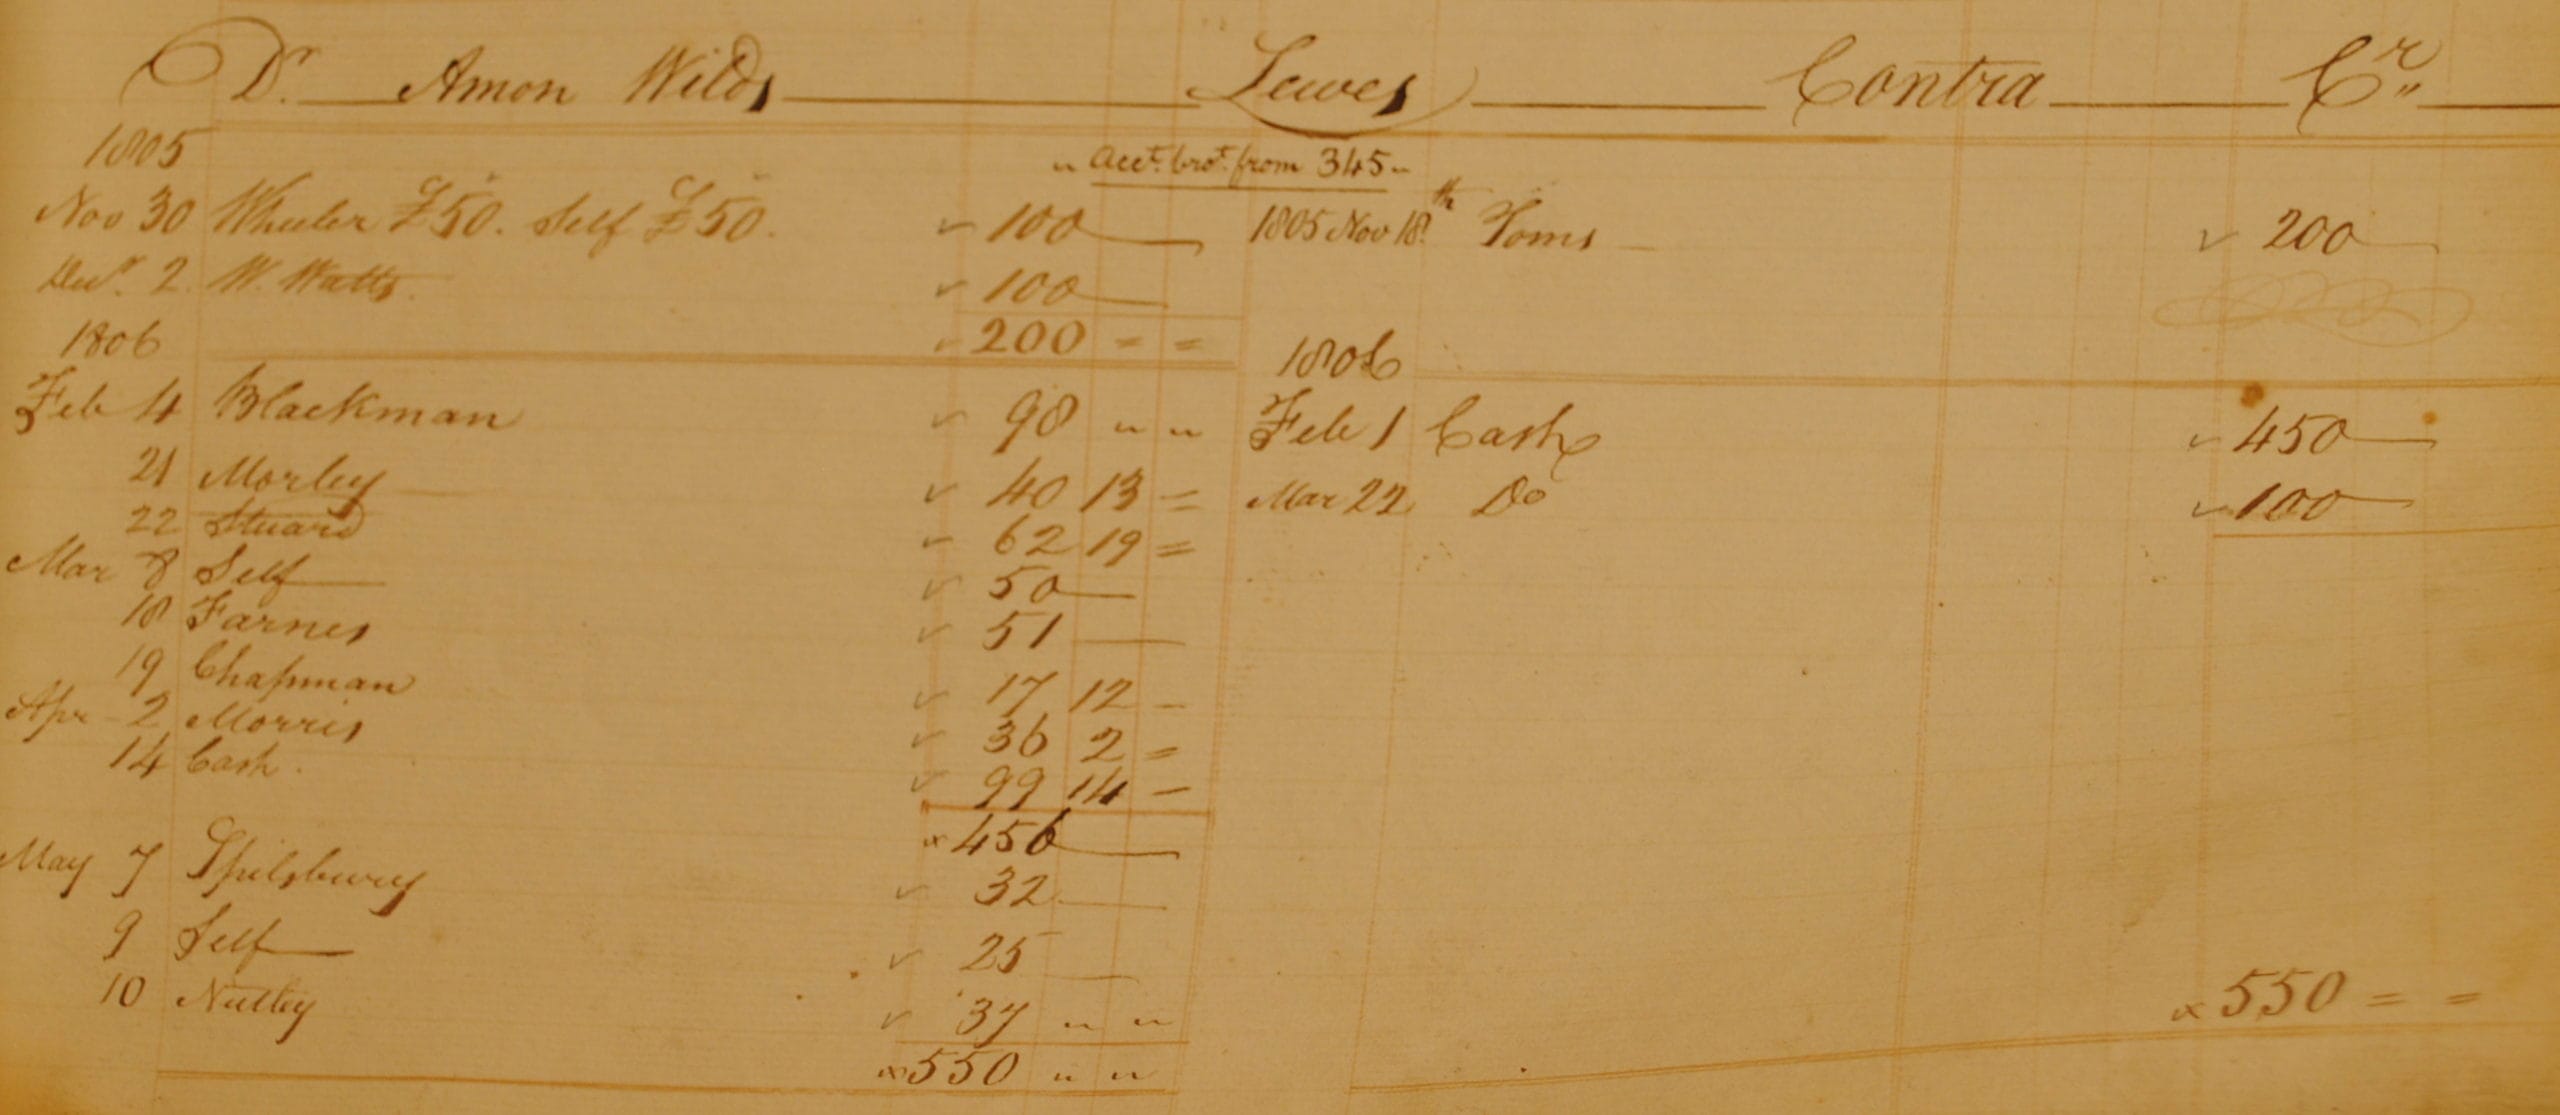 Dr. Amon Wilds Lewes Contra Cr
1805
" Acct. brot. from 345 "
Nov 30 Wheeler £50. Self £50. 100
1805 Nov 18th Toms 200
Decr. 2. W. Watts. 100
200 = =
1806
1806
Feb 4 Blackman 98 " "
Feb 1 Cash 450
21 Morley 40 13 =
Mar 22 Do 100
22 Stuard 62 19 =
Mar 8 Self 50
18 Farnes 51
19 Chapman 17 12 -
Apr - 2 Morris 36 2 =
14 Cash. 99 14 -
x 456
May 7 Spilsbury 32
9 Self 25
10 Nutley 37 " "
x 550 = =
x 550 " "